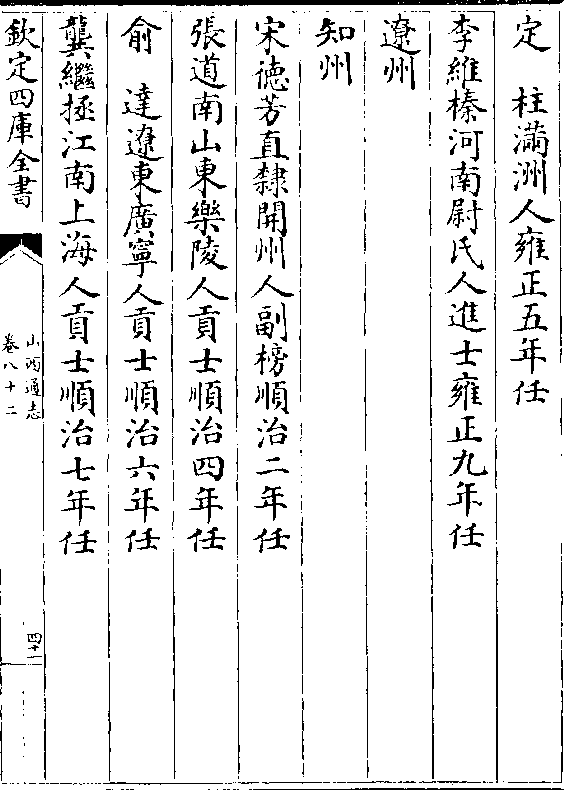 定　柱滿洲人雍正五年任
李維榛河南尉氏人進士雍正九年任
遼州
知州
宋德芳直隸開州人副榜順治二年任
張道南山東樂陵人貢士順治四年任
俞　達遼東廣寧人貢士順治六年任
龔繼拯江南上海人貢士順治七年任
欽定四庫全書
山西通志
卷八十二
四十一